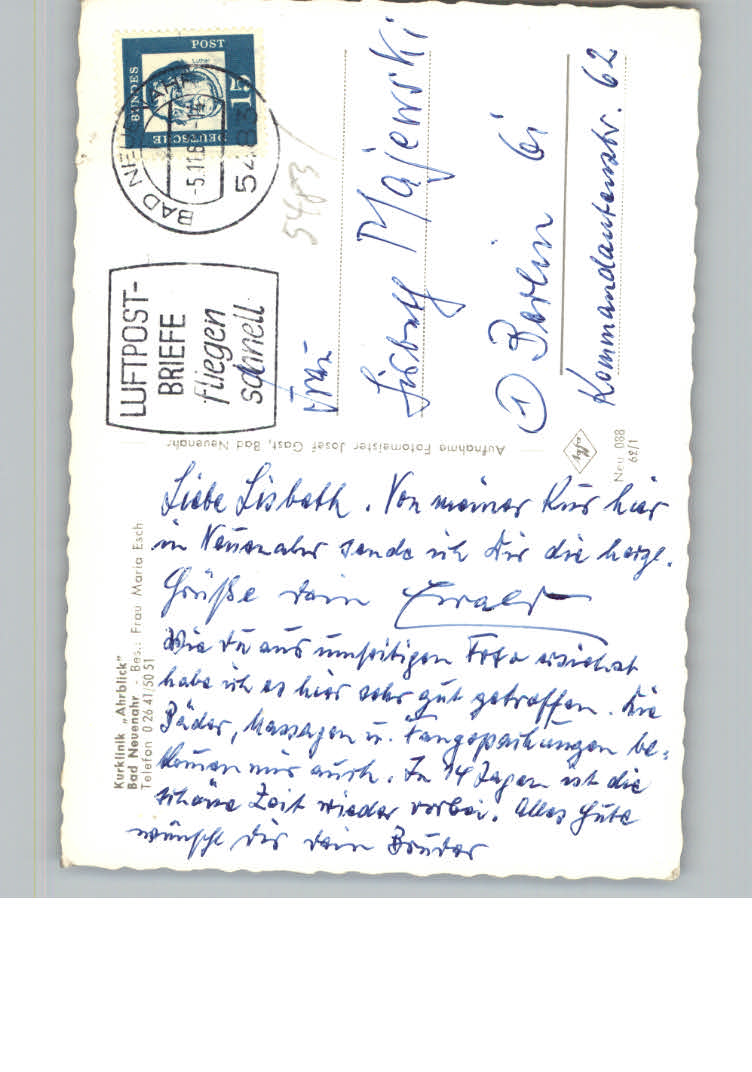 DEUTSCHE
BUNDES
POST
15
BAD NEUENAHR
-5.11.6
5483
5483
LUFTPOST-
BRIEFE
fliegen
schnell
Frau
Lisbeth Majewski
① Berlin 61
Kommandantenstr. 62
Aufnahme Fotomeister Josef Gast, Bad Neuenahr
Agfa
Neu 088
62/1
Kurklinik „Ahrblick"
Bad Neuenahr - Bes.: Frau Maria Esch
Telefon 0 26 41/50 51
Liebe Lisbeth. Von meiner Kur hier
in Neuenahr sende ich Dir die herzl.
Grüße Dein Ewald
Wie Du aus umseitigen Foto ersiehst
habe ich es hier sehr gut getroffen. Die
Bäder, Massagen u. Fangopackungen be-
kommen mir auch. In 14 Tagen ist die
schöne Zeit wieder vorbei. Alles Gute
wünscht Dir Dein Bruder